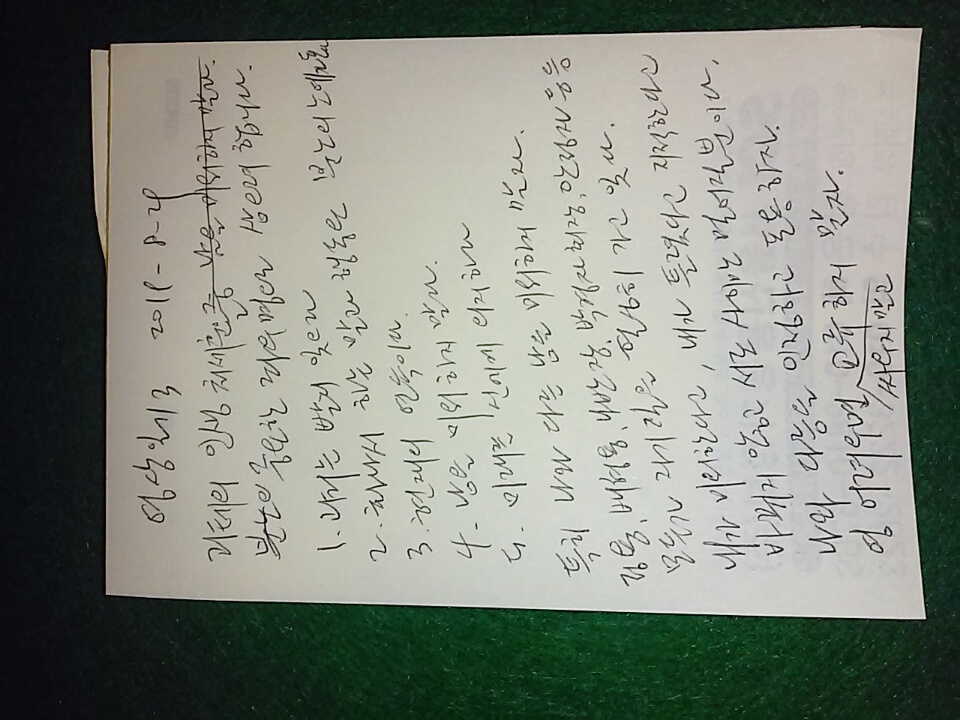 영상일기 3 2019-8-29
괴테의 인생 처세훈을 중 남을 미워하지 말라.
분노의 중요한 좌우명으로 삼으려 합니다.
1. 과거는 빨리 잊으라
2. 화나서 하는 말과 행동은 분노의 노예
3. 현재의 연속이다.
4. 남을 미워하지 말라.
5. 미래는 신에게 의지하라
특히 나와 다른 남을 미워하지 말자.
정용, 배형용, 나반장, 박경자회장, 안정자 등등
모두가 자기 길을 열심히 가고 있다.
내가 미워한다고, 내가 틀렸다고 지적한다고
바뀌지 않고 서로 사이만 멀어질뿐이다.
나와 다름을 인정하고 포용하자.
영 어려우면 교류하지 말자.
싸우지 말고